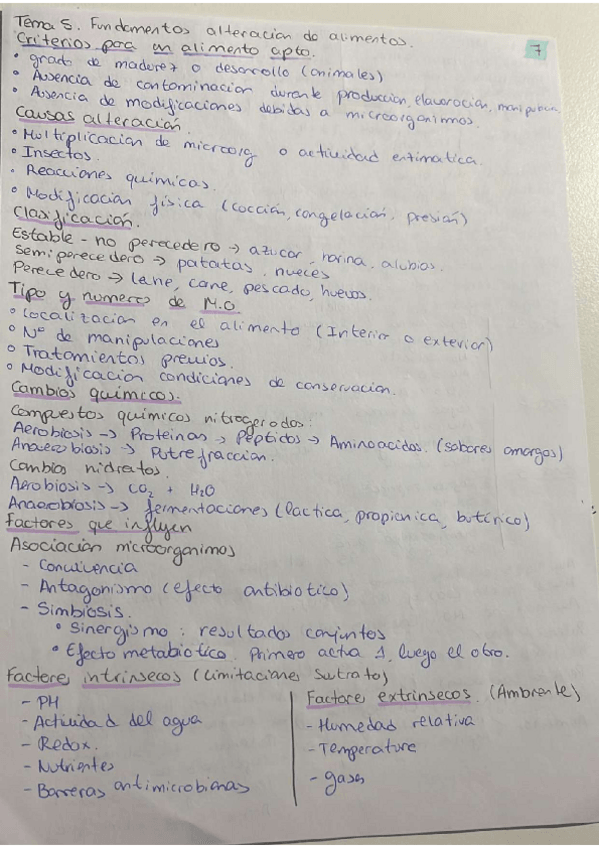 Tema 5. Fundamentos alteración de alimentos.
7
Criterios para un alimento apto.
• grado de madurez o desarrollo (animales)
• Ausencia de contaminación durante producción, elavoración, manipulación
• Ausencia de modificaciones debidas a microorganimos.
Causas alteración.
• Multiplicación de microorg o actividad enzimatica.
• Insectos.
• Reacciones químicas.
• Modificación física (cocción, congelación, presión)
Clasificación.
Estable - no perecedero → azucar, harina, alubias.
Semiperecedero → patatas, nueces
Perecedero → leche, carne, pescado, huevos.
Tipo y numeros de M.O
• Localización en el alimento (Interior o exterior)
• Nº de manipulaciones
• Tratamientos previos.
• Modificación condiciones de conservación.
Cambios químicos.
Compuestos químicos nitrogenados:
Aerobiosis → Proteínas → Péptidos → Aminoacidos. (sabores amargos)
Anaerobiosis → Putrefracción.
Cambios hidratos.
Aerobiosis → CO2 + H2O
Anaerobiosis → fermentaciones (láctica, propicnica, butírico)
Factores que influyen
Asociación microorganimos
- Convivencia
- Antagonismo (efecto antibiotico)
- Simbiosis.
• Sinergismo: resultados conjuntos
• Efecto metabiotico. Primero actua 1, luego el otro.
Factores intrinsecos (Limitaciones sustrato)
- PH
- Actividad del agua
- Redox.
- Nutrientes
- Barreras antimicrobianas
Factores extrinsecos. (Ambiente)
- Humedad relativa
- Temperature
- gases